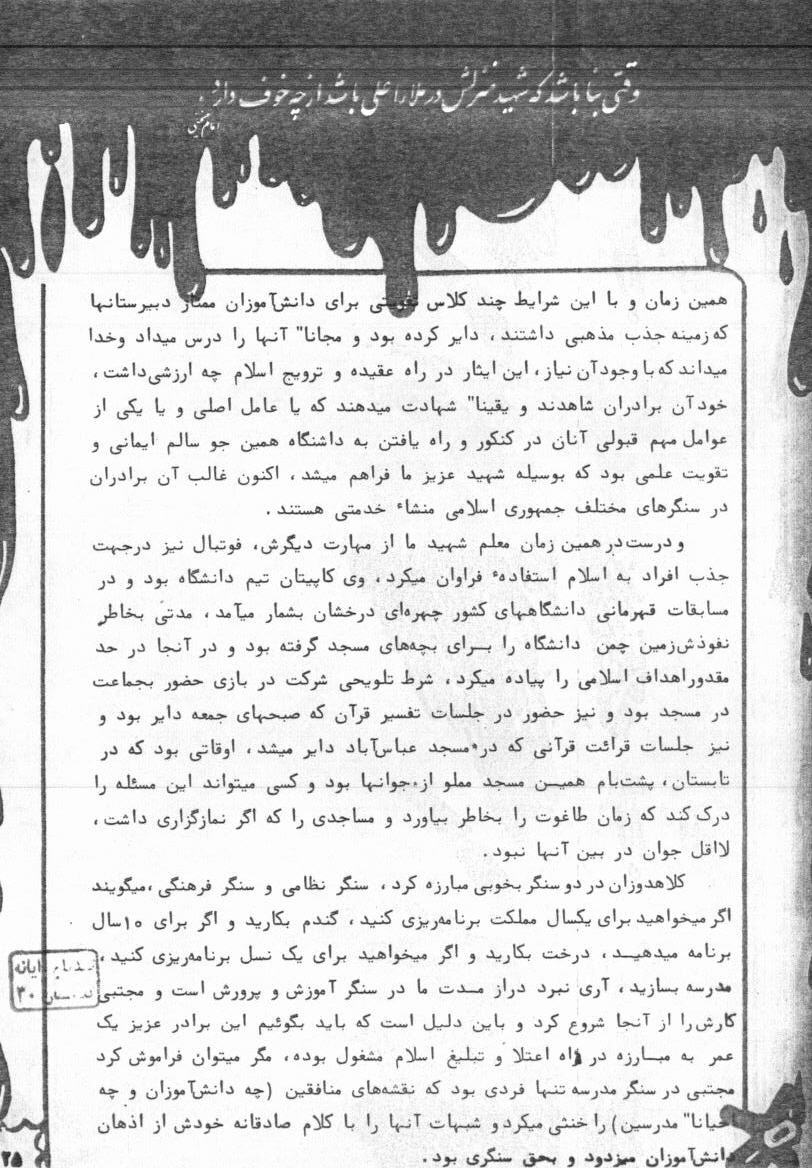 وقتی بنا باشد که شهید منزلش در ملاء اعلی باشد از چه خوف دارد
امام خمینی
همین زمان و با این شرایط چند کلاس تقویتی برای دانش‌آموزان ممتاز دبیرستانها
که زمینه جذب مذهبی داشتند، دایر کرده بود و مجانا" آنها را درس میداد وخدا
میداند که با وجود آن نیاز، این ایثار در راه عقیده و ترویج اسلام چه ارزشی داشت،
خود آن برادران شاهدند و یقینا" شهادت میدهند که یا عامل اصلی و یا یکی از
عوامل مهم قبولی آنان در کنکور و راه یافتن به داشنگاه همین جو سالم ایمانی و
تقویت علمی بود که بوسیله شهید عزیز ما فراهم میشد، اکنون غالب آن برادران
در سنگرهای مختلف جمهوری اسلامی منشاء خدمتی هستند.
و درست در همین زمان معلم شهید ما از مهارت دیگرش، فوتبال نیز درجهت
جذب افراد به اسلام استفادهٔ فراوان میکرد، وی کاپیتان تیم دانشگاه بود و در
مسابقات قهرمانی دانشگاههای کشور چهره‌ای درخشان بشمار میآمد، مدتی بخاطر
نفوذش زمین چمن دانشگاه را بــرای بچه‌های مسجد گرفته بود و در آنجا در حد
مقدور اهداف اسلامی را پیاده میکرد، شرط تلویحی شرکت در بازی حضور بجماعت
در مسجد بود و نیز حضور در جلسات تفسیر قرآن که صبحهای جمعه دایر بود و
نیز جلسات قرائت قرآنی که در مسجد عباس‌آباد دایر میشد، اوقاتی بود که در
تابستان، پشت‌بام همیــن مسجد مملو از جوانها بود و کسی میتواند این مسئله را
درک کند که زمان طاغوت را بخاطر بیاورد و مساجدی را که اگر نمازگزاری داشت،
لااقل جوان در بین آنها نبود.
کلاهدوزان در دو سنگر بخوبی مبارزه کرد، سنگر نظامی و سنگر فرهنگی، میگویند
اگر میخواهید برای یکسال مملکت برنامه‌ریزی کنید، گندم بکارید و اگر برای ۱۰سال
برنامه میدهیــد، درخت بکارید و اگر میخواهید برای یک نسل برنامه‌ریزی کنید،
مدرسه بسازید، آری نبرد دراز مــدت ما در سنگر آموزش و پرورش است و مجتبی
کارش را از آنجا شروع کرد و باین دلیل است که باید بگوئیم این برادر عزیز یک
عمر به مبــارزه در راه اعتلا و تبلیغ اسلام مشغول بوده، مگر میتوان فراموش کرد
مجتبی در سنگر مدرسه تنها فردی بود که نقشه‌های منافقین (چه دانش‌آموزان و چه
احیانا" مدرسین) را خنثی میکرد و شبهات آنها را با کلام صادقانه خودش از اذهان
دانش‌آموزان میزدود و بحق سنگری بود.
۳۰
۲۵